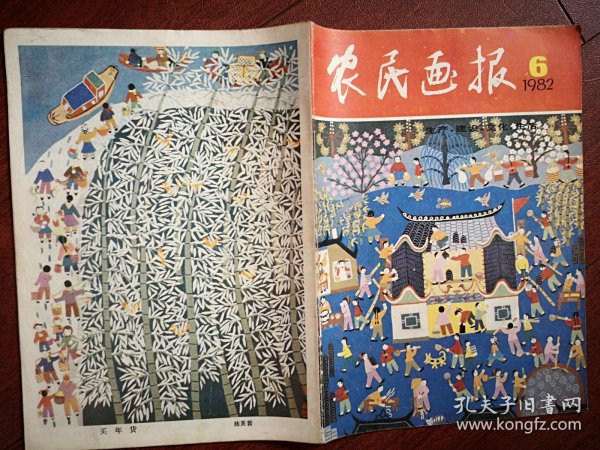 农民画报
6
1982
生产·建设·文化·生活
买年货
陈芙蓉
孔夫子旧书网
www.kongfz.com